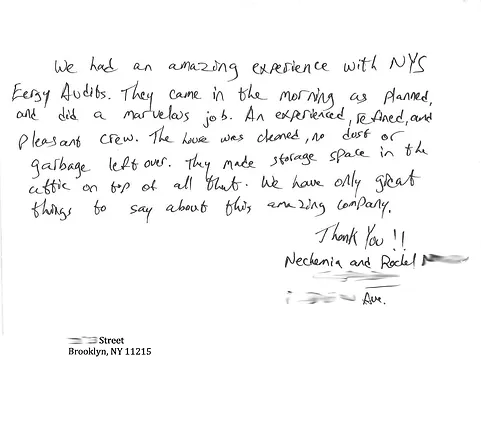 We had an amazing experience with NYS
Eergy Audits. They came in the morning as planned,
and did a marvelous job. An experienced, refined, and
pleasant crew. The house was cleaned, no dust or
garbage left over. They made storage space in the
attic on top of all that. We have only great
things to say about this amazing company.
Thank You!!
Nechemia and Rochel
Ave.
Street
Brooklyn, NY 11215